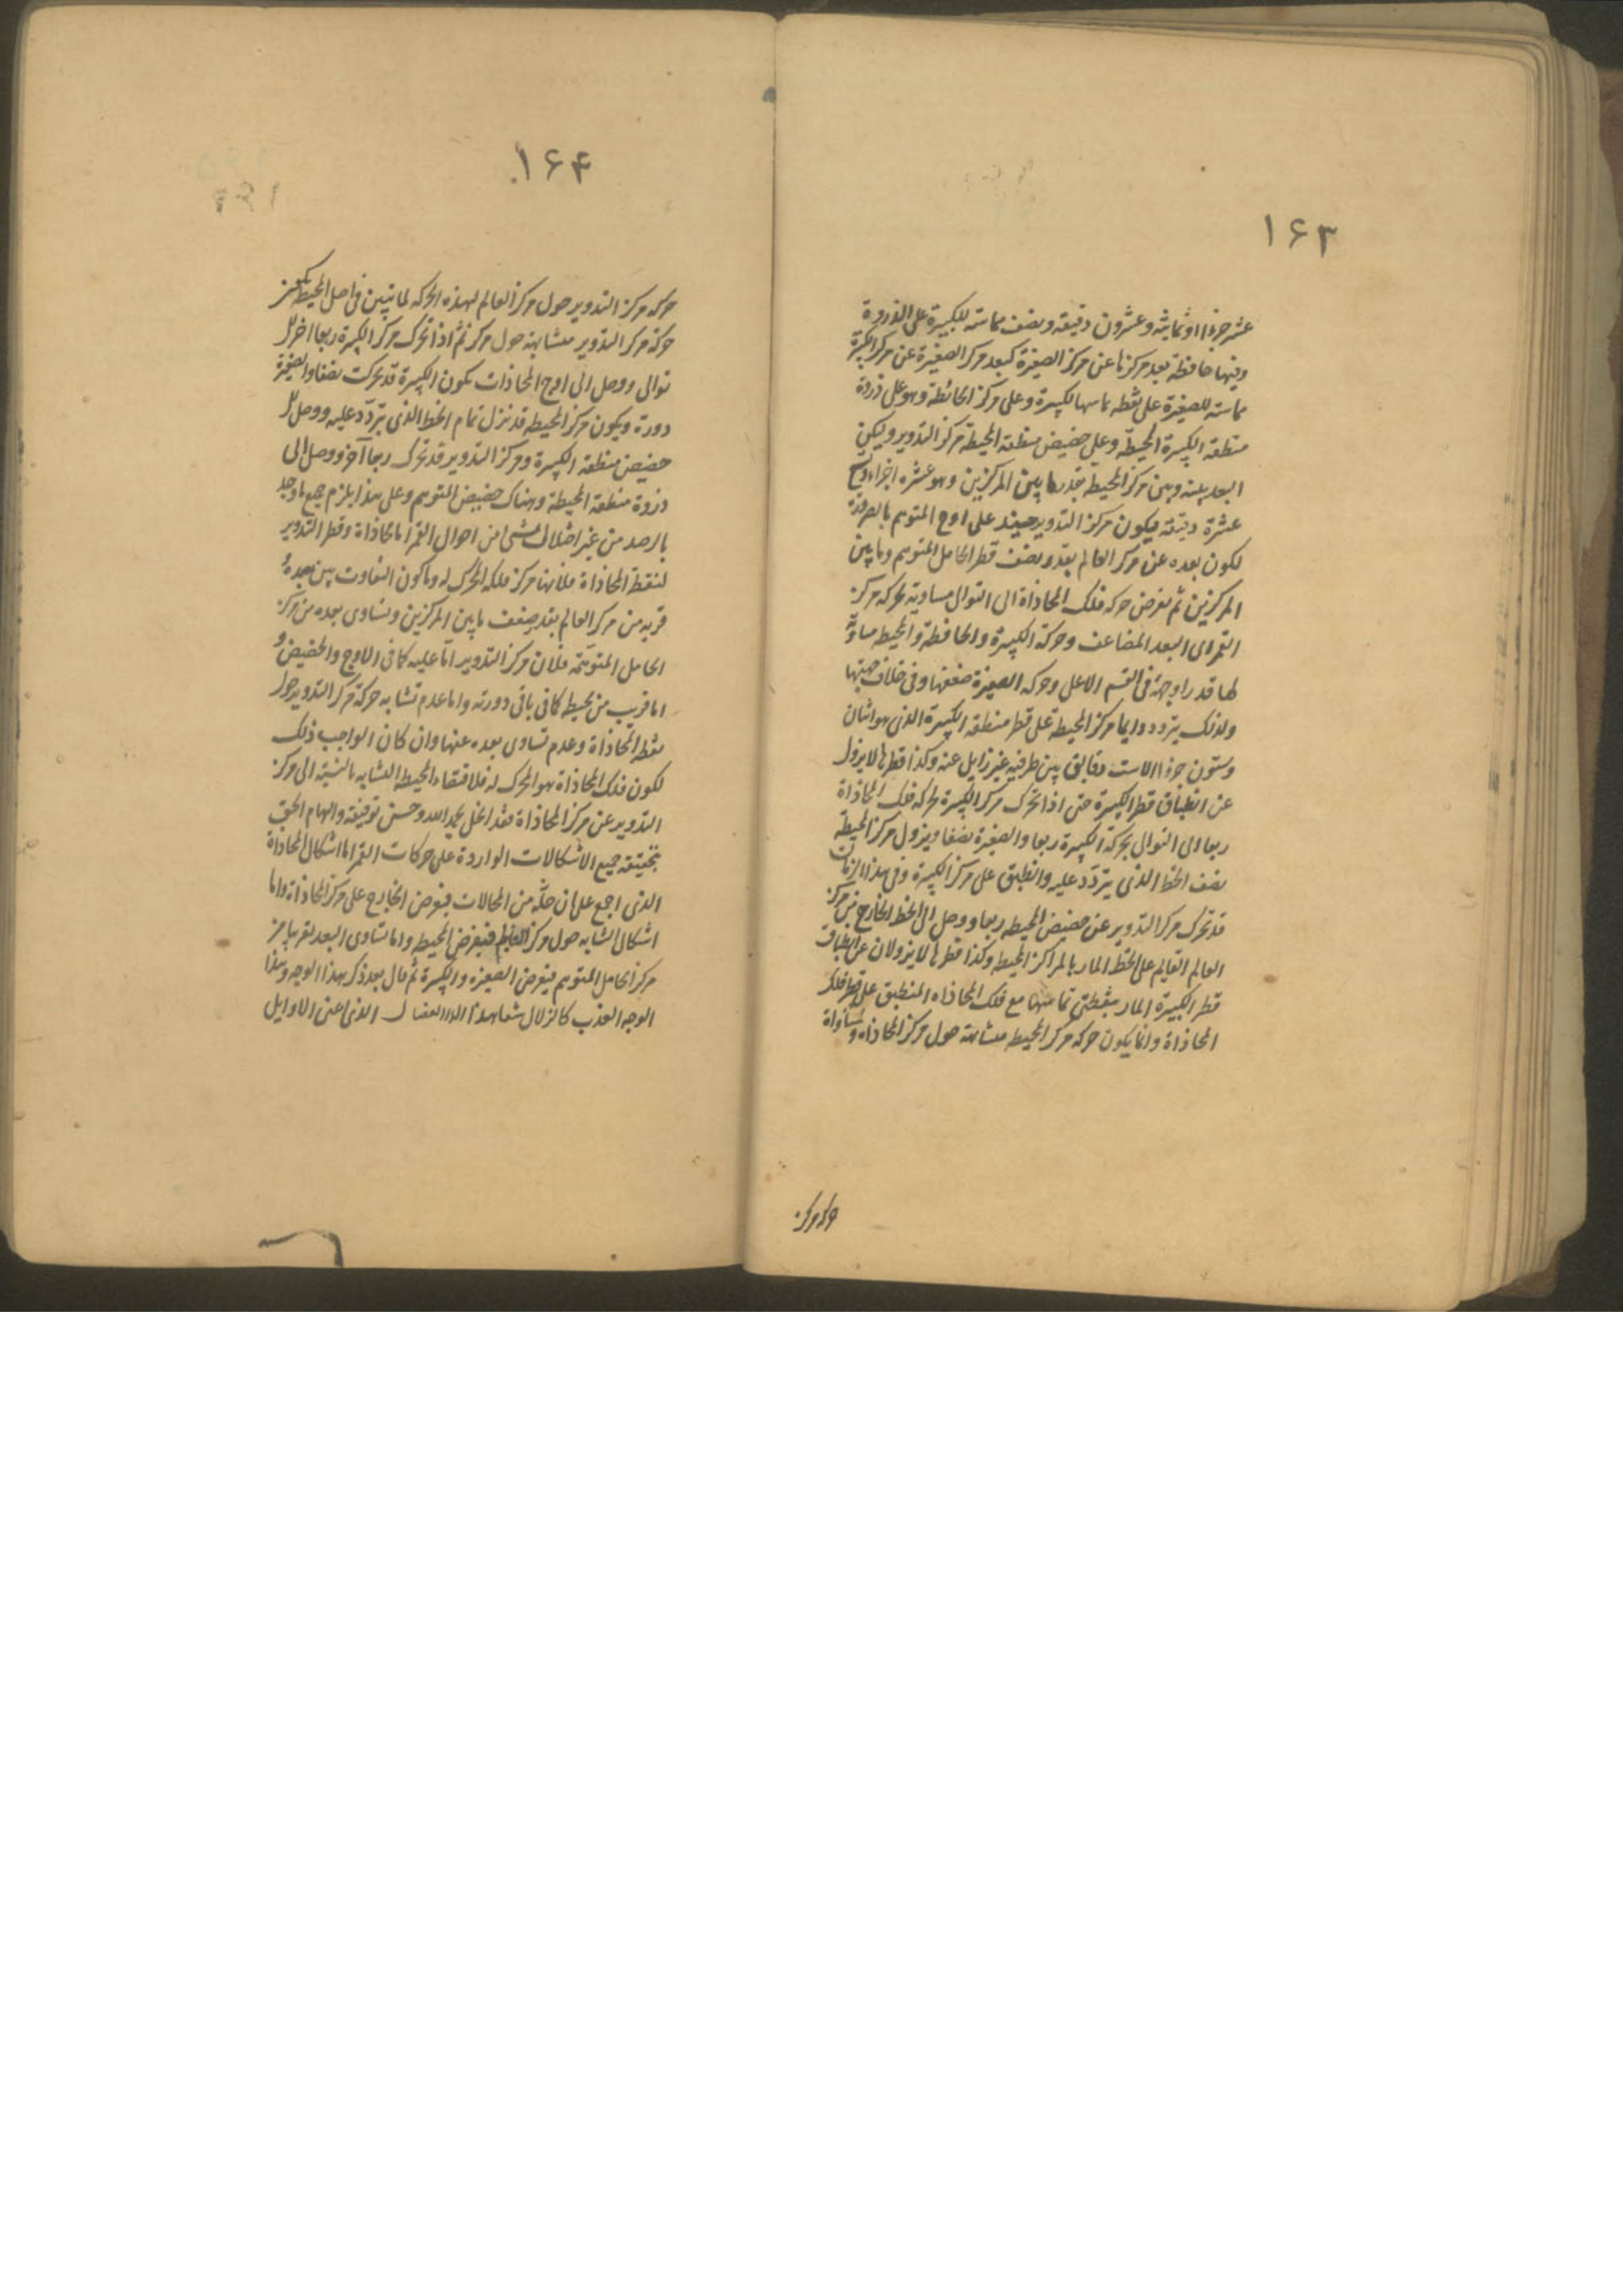 ۱۶۳
عشر جزءا وثمانية وعشرون دقيقة ونصف مماسة للكبيرة على الذروة
وفيها حافظة بعد مركزها عن مركز الصغيرة كبعد مركز الصغيرة عن مركز الكبيرة
مماسة للصغيرة على نقطة تماسها لكبيرة وعلى مركز الحافظة وهو على ذروة
منطقة الكبيرة المحيطة وعلى حضيض منطقة المحيطة مركز التدوير وليكن
البعد بينه وبين مركز المحيط بقدر ما بين المركزين وهو عشرة اجزاء و
عشرة دقيقة فيكون مركز التدوير حينئذ على اوج المتوهم بالضرورة
لكون بعده عن مركز العالم بقدر نصف قطر الحامل المتوهم وما بين
المركزين ثم نفرض حركة فلك المحاذاة الى التوالى مساوية لحركة مركز
القمر اى البعد المضاعف وحركة الكبيرة والحافظة والمحيط مساوية
لها قدرا وجهة فى القسم الاعلى وحركة الصغيرة ضعفها وفى خلاف جهتها
ولذلك يتردد دايما مركز المحيطة على قطر منطقة الكبيرة الذى هو اثنان
وستون جزءا الاست دقايق بين طرفيه غير زايل عنه وكذا قطرها لايزول
عن انطباق قطر الكبيرة حتى اذا تحرك مركز الكبيرة بحركة فلك المحاذاة
ربعا الى التوالى بحركة الكبيرة ربعا والصغيرة نصفا ويزول مركز المحيطة
نصف الخط الذى يتردد عليه وانطبق على مركز الكبيرة وفى هذا الزمان
قد تحرك مركز التدوير عن حضيض المحيطة ربعا ووصل الى الخط الخارج من مركز
العالم القايم على الخط المار بالمراكز المحيط وكذا قطرها لا يزولان عن انطباق
قطر الكبيرة المار بنقطتى تماسها مع فلك المحاذاه المنطبق على قطر فلك
المحاذاة وانما يكون حركة مركز المحيط متشابهة حول مركز المحاذاه ومساواة
حركة مركز
۱۶۴
حركة مركز التدوير حول مركز العالم لهذه الحركة لما تبين فى اصل المحيط
حركة مركز التدوير متشابهة حول مركز ثم اذا تحرك مركز الكبيرة ربعا اخر لا
توالى ووصل الى اوج المحاذات يكون الكبيرة قد تحركت نصفا والصغيرة
دورة ويكون مركز المحيطة قد نزل تمام الخط الذى يتردد عليه ووصل لا
حضيض منطقة الكبيرة ومركز التدوير قد تحرك ربعا آخر ووصل الى
ذروة منطقة المحيطة وهناك حضيض المتوهم وعلى هذا يلزم جميع ما وجد
بالرصد من غير اختلال شئ من احوال القمر اما محاذاة قطر التدوير
لنقطة المحاذاة فلانها مركز فلكه المحرك له وما كون التفاوت بين بعده و
قربه من مركز العالم بقدر ضعف ما بين المركزين وتساوى بعده من مركز
الحامل المتوهمة فلان مركز التدوير اما عليه كما فى الاوج والحضيض و
اما قريب من محيط كما فى باقى دورته واما عدم تشابه حركة مركز التدوير حول
نقطة المحاذاة وعدم تساوى بعده عنها وان كان الواجب ذلك
لكون فلك المحاذاة هو المحرك له فلاقتضاء المحيط التشابه بالنسبة الى مركز
التدوير عن مركز المحاذاة فقد انحل بحمد الله وحسن توفيقه والهام الحق
بتحقيقه جميع الاشكالات الواردة على حركات القمر اما اشكال المحاذاة
الذى اجمع على ان حله من المحالات فيفرض الخارج على مركز المحاذاة واما
اشكال التشابه حول مركز العالم فبفرض المحيط واما تساوى البعد تقريبا من
مركز الحامل المتوهم فيفرض الصغيره والكبيرة ثم قال بعد ذكر هذا الوجه وهذا
الوجه العذب كالزلال الذى اعتى الاوايل